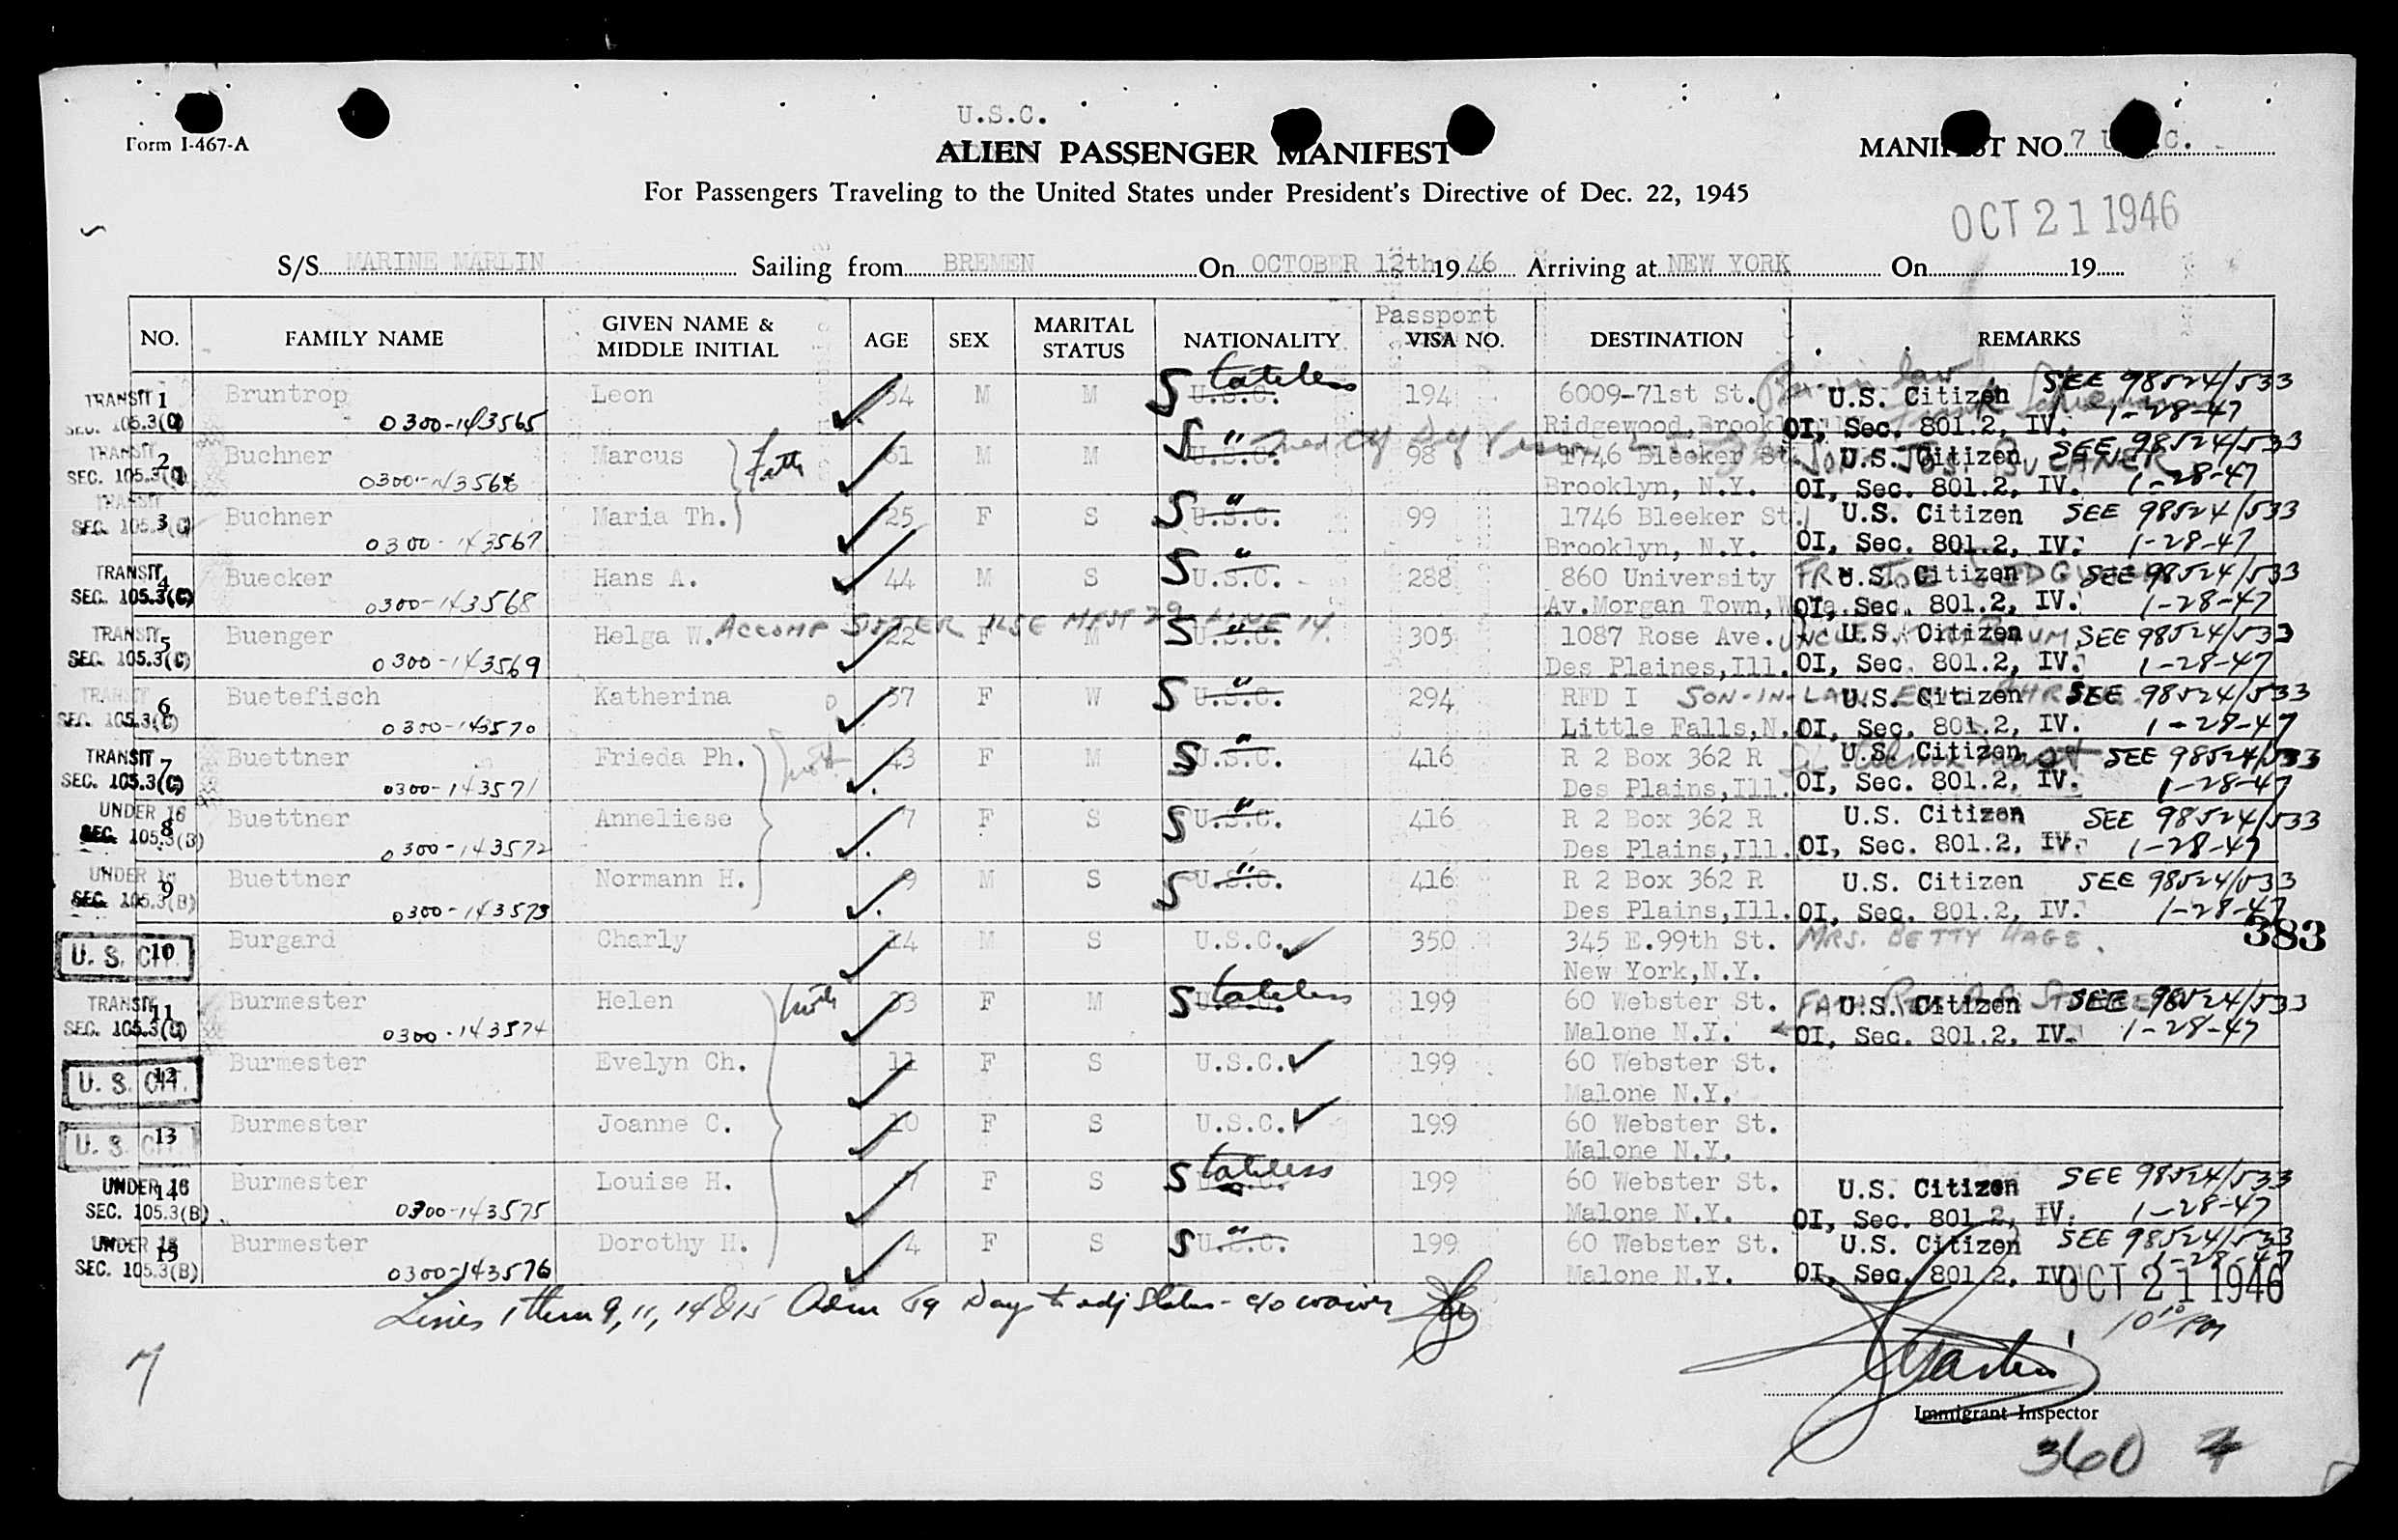 U.S.C.
Form I-467-A
ALIEN PASSENGER MANIFEST
MANIFEST NO. 7 U.S.C.
For Passengers Traveling to the United States under President's Directive of Dec. 22, 1945
OCT 21 1946
S/S MARINE MARLIN Sailing from BREMEN On OCTOBER 12th 19 46 Arriving at NEW YORK On 19
NO. FAMILY NAME GIVEN NAME & MIDDLE INITIAL AGE SEX MARITAL STATUS NATIONALITY Passport VISA NO. DESTINATION REMARKS
TRANSIT 1 Bruntrop Leon 54 M M U.S.C. Stateless 194 6009-71st St. U.S. Citizen SEE 98524/533
0300-143565 Ridgewood, Brook OI, Sec. 801.2, IV. 1-28-47
TRANSIT 2 Buchner Marcus 61 M M U.S.C. S " 98 1746 Bleeker St. SON JOS. BUCHNER U.S. Citizen SEE 98524/533
SEC. 105.3(C) 0300-143566 Brooklyn, N.Y. OI, Sec. 801.2, IV. 1-28-47
TRANSIT 3 Buchner Maria Th. 25 F S U.S.C. S " 99 1746 Bleeker St. U.S. Citizen SEE 98524/533
SEC. 105.3(C) 0300-143567 Brooklyn, N.Y. OI, Sec. 801.2, IV. 1-28-47
TRANSIT 4 Buecker Hans A. 44 M S U.S.C. S " 288 860 University U.S. Citizen SEE 98524/533
SEC. 105.3(C) 0300-143568 Av. Morgan Town, OI, Sec. 801.2, IV. 1-28-47
ACCOMP SISTER ILSE MFST 29 LINE 14
TRANSIT 5 Buenger Helga W. 22 F M U.S.C. S " 305 1087 Rose Ave. UNCLE U.S. Citizen SEE 98524/533
SEC. 105.3(C) 0300-143569 Des Plaines, Ill. OI, Sec. 801.2, IV. 1-28-47
TRANSIT 6 Buetefisch Katherina 57 F W U.S.C. S " 294 RFD I SON-IN-LAW U.S. Citizen SEE 98524/533
SEC. 105.3(C) 0300-143570 Little Falls, N. OI, Sec. 801.2, IV. 1-28-47
TRANSIT 7 Buettner Frieda Ph. 43 F M U.S.C. S " 416 R 2 Box 362 R U.S. Citizen SEE 98524/533
SEC. 105.3(C) 0300-143571 Des Plains, Ill. OI, Sec. 801.2, IV. 1-28-47
UNDER 16 8 Buettner Anneliese 7 F S U.S.C. S " 416 R 2 Box 362 R U.S. Citizen SEE 98524/533
SEC. 105.3(B) 0300-143572 Des Plains, Ill. OI, Sec. 801.2, IV. 1-28-47
UNDER 16 9 Buettner Normann H. 9 M S U.S.C. S " 416 R 2 Box 362 R U.S. Citizen SEE 98524/533
SEC. 105.3(B) 0300-143573 Des Plains, Ill. OI, Sec. 801.2, IV. 1-28-47
383
U. S. CIT. 10 Burgard Charly 14 M S U.S.C. 350 345 E.99th St. MRS. BETTY HAGE.
New York, N.Y.
TRANSIT 11 Burmester Helen 33 F M Stateless 199 60 Webster St. U.S. Citizen SEE 98524/533
SEC. 105.3(C) 0300-143574 Malone N.Y. OI, Sec. 801.2, IV. 1-28-47
U. S. CIT. 12 Burmester Evelyn Ch. 11 F S U.S.C. 199 60 Webster St.
Malone N.Y.
U. S. CIT. 13 Burmester Joanne C. 10 F S U.S.C. 199 60 Webster St.
Malone N.Y.
UNDER 16 14 Burmester Louise H. 7 F S Stateless 199 60 Webster St. U.S. Citizen SEE 98524/533
SEC. 105.3(B) 0300-143575 Malone N.Y. OI, Sec. 801.2, IV. 1-28-47
UNDER 16 15 Burmester Dorothy H. 4 F S U.S.C. S " 199 60 Webster St. U.S. Citizen SEE 98524/533
SEC. 105.3(B) 0300-143576 Malone N.Y. OI, Sec. 801.2, IV. 1-28-47
OCT 21 1946
Lines 1 thru 9, 11, 14 & 15 Adm 59 Days to adj Status - c/o waiver
10 10 PM
7
Immigrant Inspector
360 7